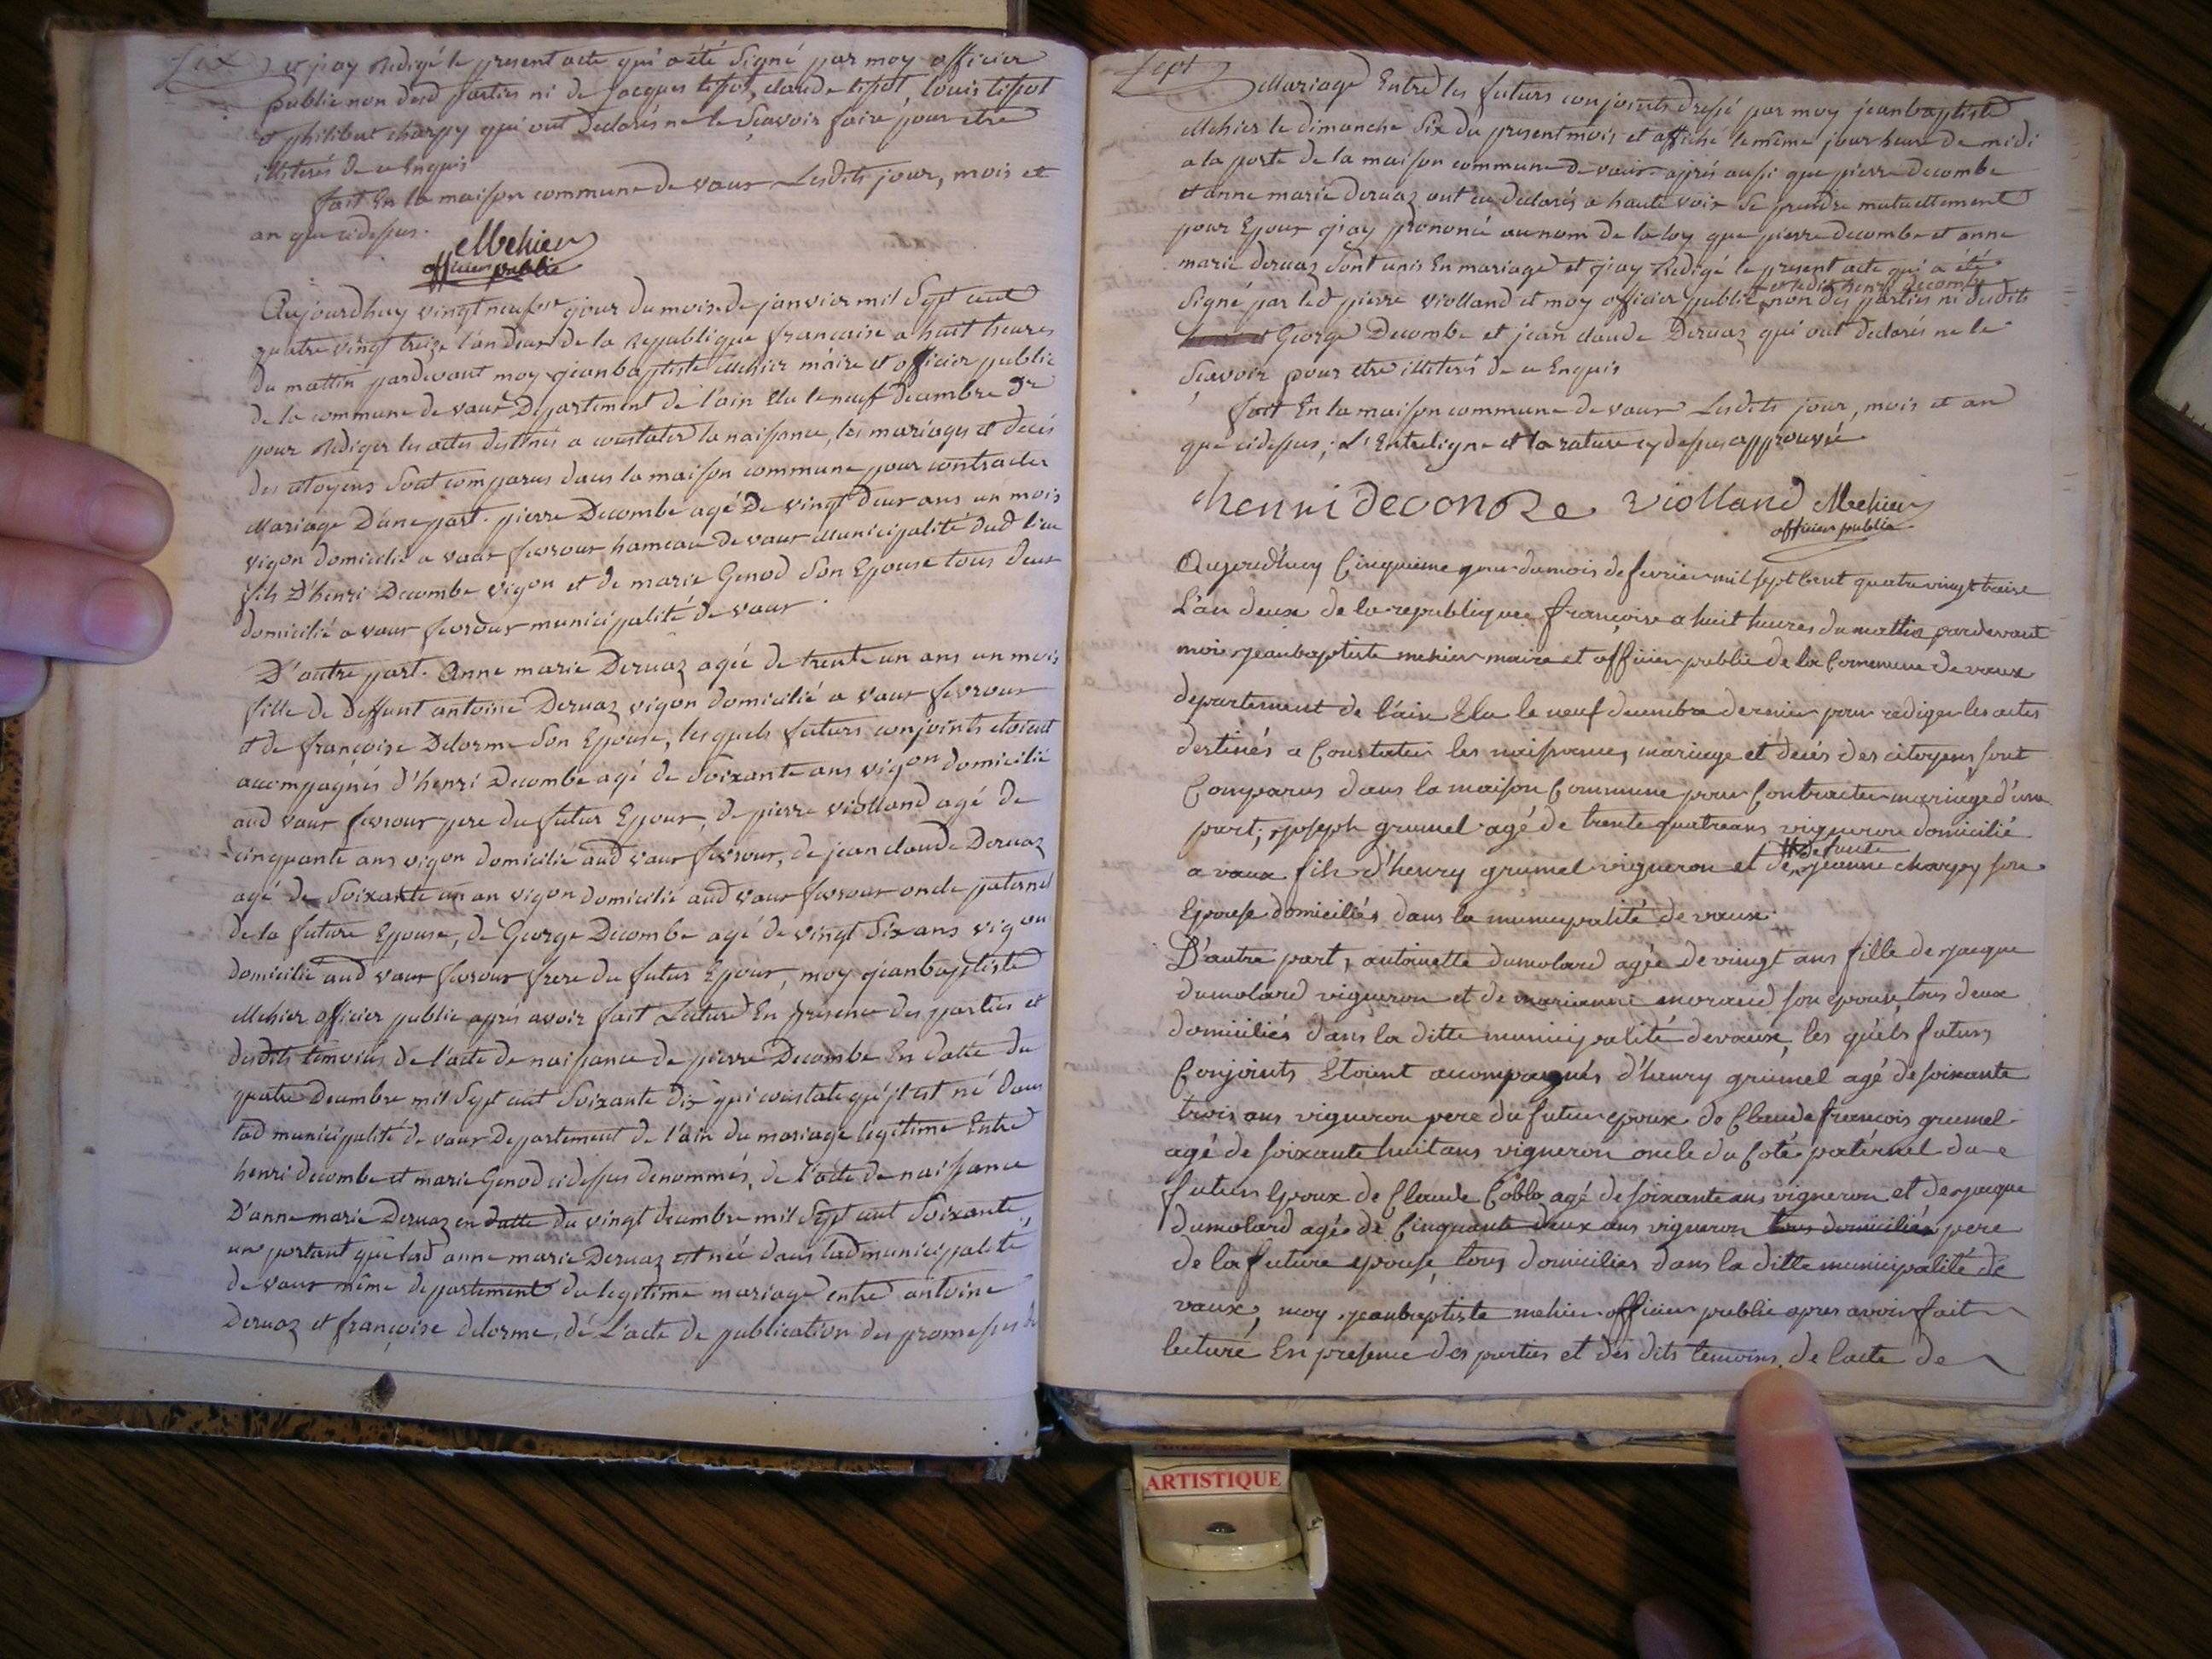 Six
et j'ay Redigé le present acte qui a été Signé par moy officier
public non desd parties ni de Jacques tissot, claude tissot, louis tissot
et philibert charpy qui ont Declarés ne le Sçavoir faire pour etre
illiterés de ce Enquis
fait En la maison commune de vaux Lesdits jour, mois et
an que cidessus.
Mehier
officier public
Aujourdhuy vingt neufvr jour du mois de janvier mil Sept cent
quatre vingt treize l'an deux de la Republique francaise a huit heures
du mattin pardevant moy jean baptiste Mehier maire et officier public
de la commune de vaux Departement de l'ain Elu le neuf decembre dr
pour Rediger les actes destinés a constater la naissance, les mariages et decés
des citoyens Sont comparus dans la maison commune pour contracter
Mariage D'une part. pierre Decombe agé De vingt Deux ans un mois
vigon domicilié a vaux fevroux hameau de vaux Municipalité dud lieu
fils D'henri Decombe vigon et de marie Genod Son Epouse tous deux
domicilié a vaux fevroux municipalité de vaux.
D'autre part. Anne marie Deruaz agée de trente un ans un mois
fille de deffunt antoine Deruaz vigon domicilié a vaux fevroux
et de françoise Delorme Son Epouse, lesquels futurs conjoints etoient
accompagnés d'henri Decombe agé de Soixante ans vigon domicilié
aud vaux fevroux pere du futur Epoux, de pierre violland agé de
cinquante ans vigon domicilié aud vaux fevroux, de jean claude Deruaz
agé de Soixante un an vigon domicilié aud vaux fevroux oncle paternel
de la future Epouse, de George Decombe agé de vingt Six ans vigon
domicilié aud vaux fevroux frere du futur Epoux, moy jean baptiste
Mehier officier public aprés avoir fait Lecture En presence des parties et
desdits temoins de l'acte de naissance de pierre Decombe En datte du
quatre Decembre mil Sept cent Soixante dix qui constate qu'il est né dans
lad municipalité de vaux Departement de l'ain du mariage legitime Entre
henri decombe et marie Genod cidessus denommés, de l'acte de naissance
D'anne marie Deruaz en datte du vingt decembre mil Sept cent Soixante
un portant que lad anne marie Deruaz est née dans lad municipalité
de vaux même departement du legitime mariage entre antoine
Deruaz et françoise delorme, de L'acte de publication des promesses de
Sept
Mariage Entre les futurs conjoints dressé par moy jean baptiste
Mehier le dimanche Six du present mois et affiché le même jour heure de midi
a la porte de la maison commune de vaux. aprés aussi que pierre decombe
et anne marie deruaz ont eu declarés a haute voix Se prendre mutuellement
pour Epoux j'ay prononcé au nom de la loy que pierre decombe et anne
marie deruaz Sont unis En mariage et j'ay Redigé le present acte qui a été
et ledit henri decombe
Signé par led pierre violland et moy officier public non des parties ni desdits
George Decombe et jean claude Deruaz qui ont declarés ne le
Sçavoir pour etre illiterés de ce Enquis
fait En la maison commune de vaux Lesdits jour, mois et an
que cidessus; L'Entreligne et la rature cydessus approuvée
henri deconbe violland Mehier
officier public
Aujourd'huy Cinquieme jour du mois de fevrier mil sept Cent quatre vingt treise
L'an deux de la republique françoise a huit heures du mattin pardevant
moi jean baptiste mehier maire et officier public de la Commune de vaux
departement de l'ain Elu le neuf decembre dernier pour rediger les actes
destinés a Constater les naissances, mariage et décés des citoyens sont
Comparus dans la maison Commune pour Contracter mariage d'une
part, joseph grumel agé de trente quatre ans vigneron domicilié
defunte
a vaux fils d'henry grumel vigneron et de jeanne charpy son
Epouse domiciliés dans la municipalité de vaux.
D'autre part, antoinette dumolard agée de vingt ans fille de jacque
dumolard vigneron et de marianne morand son epouse tous deux
domiciliés dans la ditte municipalité de vaux, les quels futurs
Conjoints Etoient accompagnés d'henry grumel agé de soixante
trois ans vigneron pere du futur epoux de Claude francois grumel
agé de soixante huit ans vigneron oncle du Coté paternel du
futur Epoux de Claude Coblo agé de soixante ans vigneron et de jacque
dumolard agée de Cinquante deux ans vigneron tous domiciliés pere
de la future epouse, tous domicilies dans la ditte municipalité de
vaux, moy jean baptiste mehier officier public apres avoir fait
lecture En presence des parties et des dits temoins, de l'acte de
ARTISTIQUE